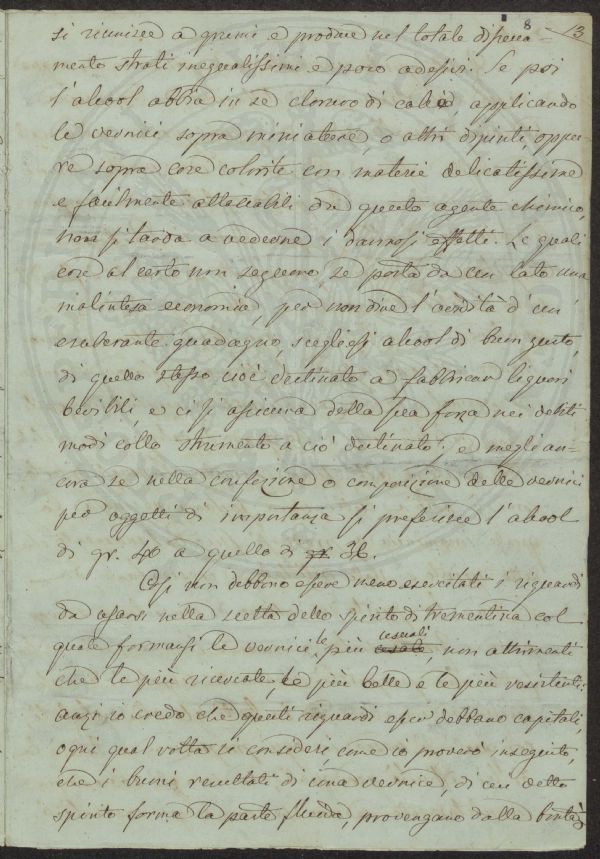 8 13
si riunisce a grumi e produce nel totale dissecca-
mento strati inegualissimi e poco adesivi. Se poi
l'alcool abbia in se cloruro di calcio, applicando
le vernici sopra miniature, o altri dipinti, oppu-
re sopra cose colorite con materie delicatissime
e facilmente attaccabili da questo agente chimico,
non si tarda a vederne i dannosi effetti. Le quali
cose al certo non seguono, se posta da un lato una
malintesa economia, per non dire l'avidità d'un
esuberante guadagno, scegliesi alcool di buon gusto,
di quello stesso cioè destinato a fabbricar liquori
bevibili, e ci si assicura della sua forza nei debiti
modi collo strumento a ciò destinato; e megli an-
cora se nella confezione o composizione delle vernici
per oggetti di importanza si preferisce l'alcool
di gr. 40 a quello di gr. 36.
Così non debbono essere meno esercitati i riguardi
da usarsi nella scelta dello spirito di trementina col
usuali
quale formansi le vernici le più usate, non altrimenti
che le più ricercate, le più belle e le più resistenti:
anzi io credo che questi riguardi esser debbano capitali,
ogni qual volta si consideri, come io proverò in seguito,
che i buoni resultati di una vernice, di cui detto
spirito forma la parte fluida, provengano dalla bontà